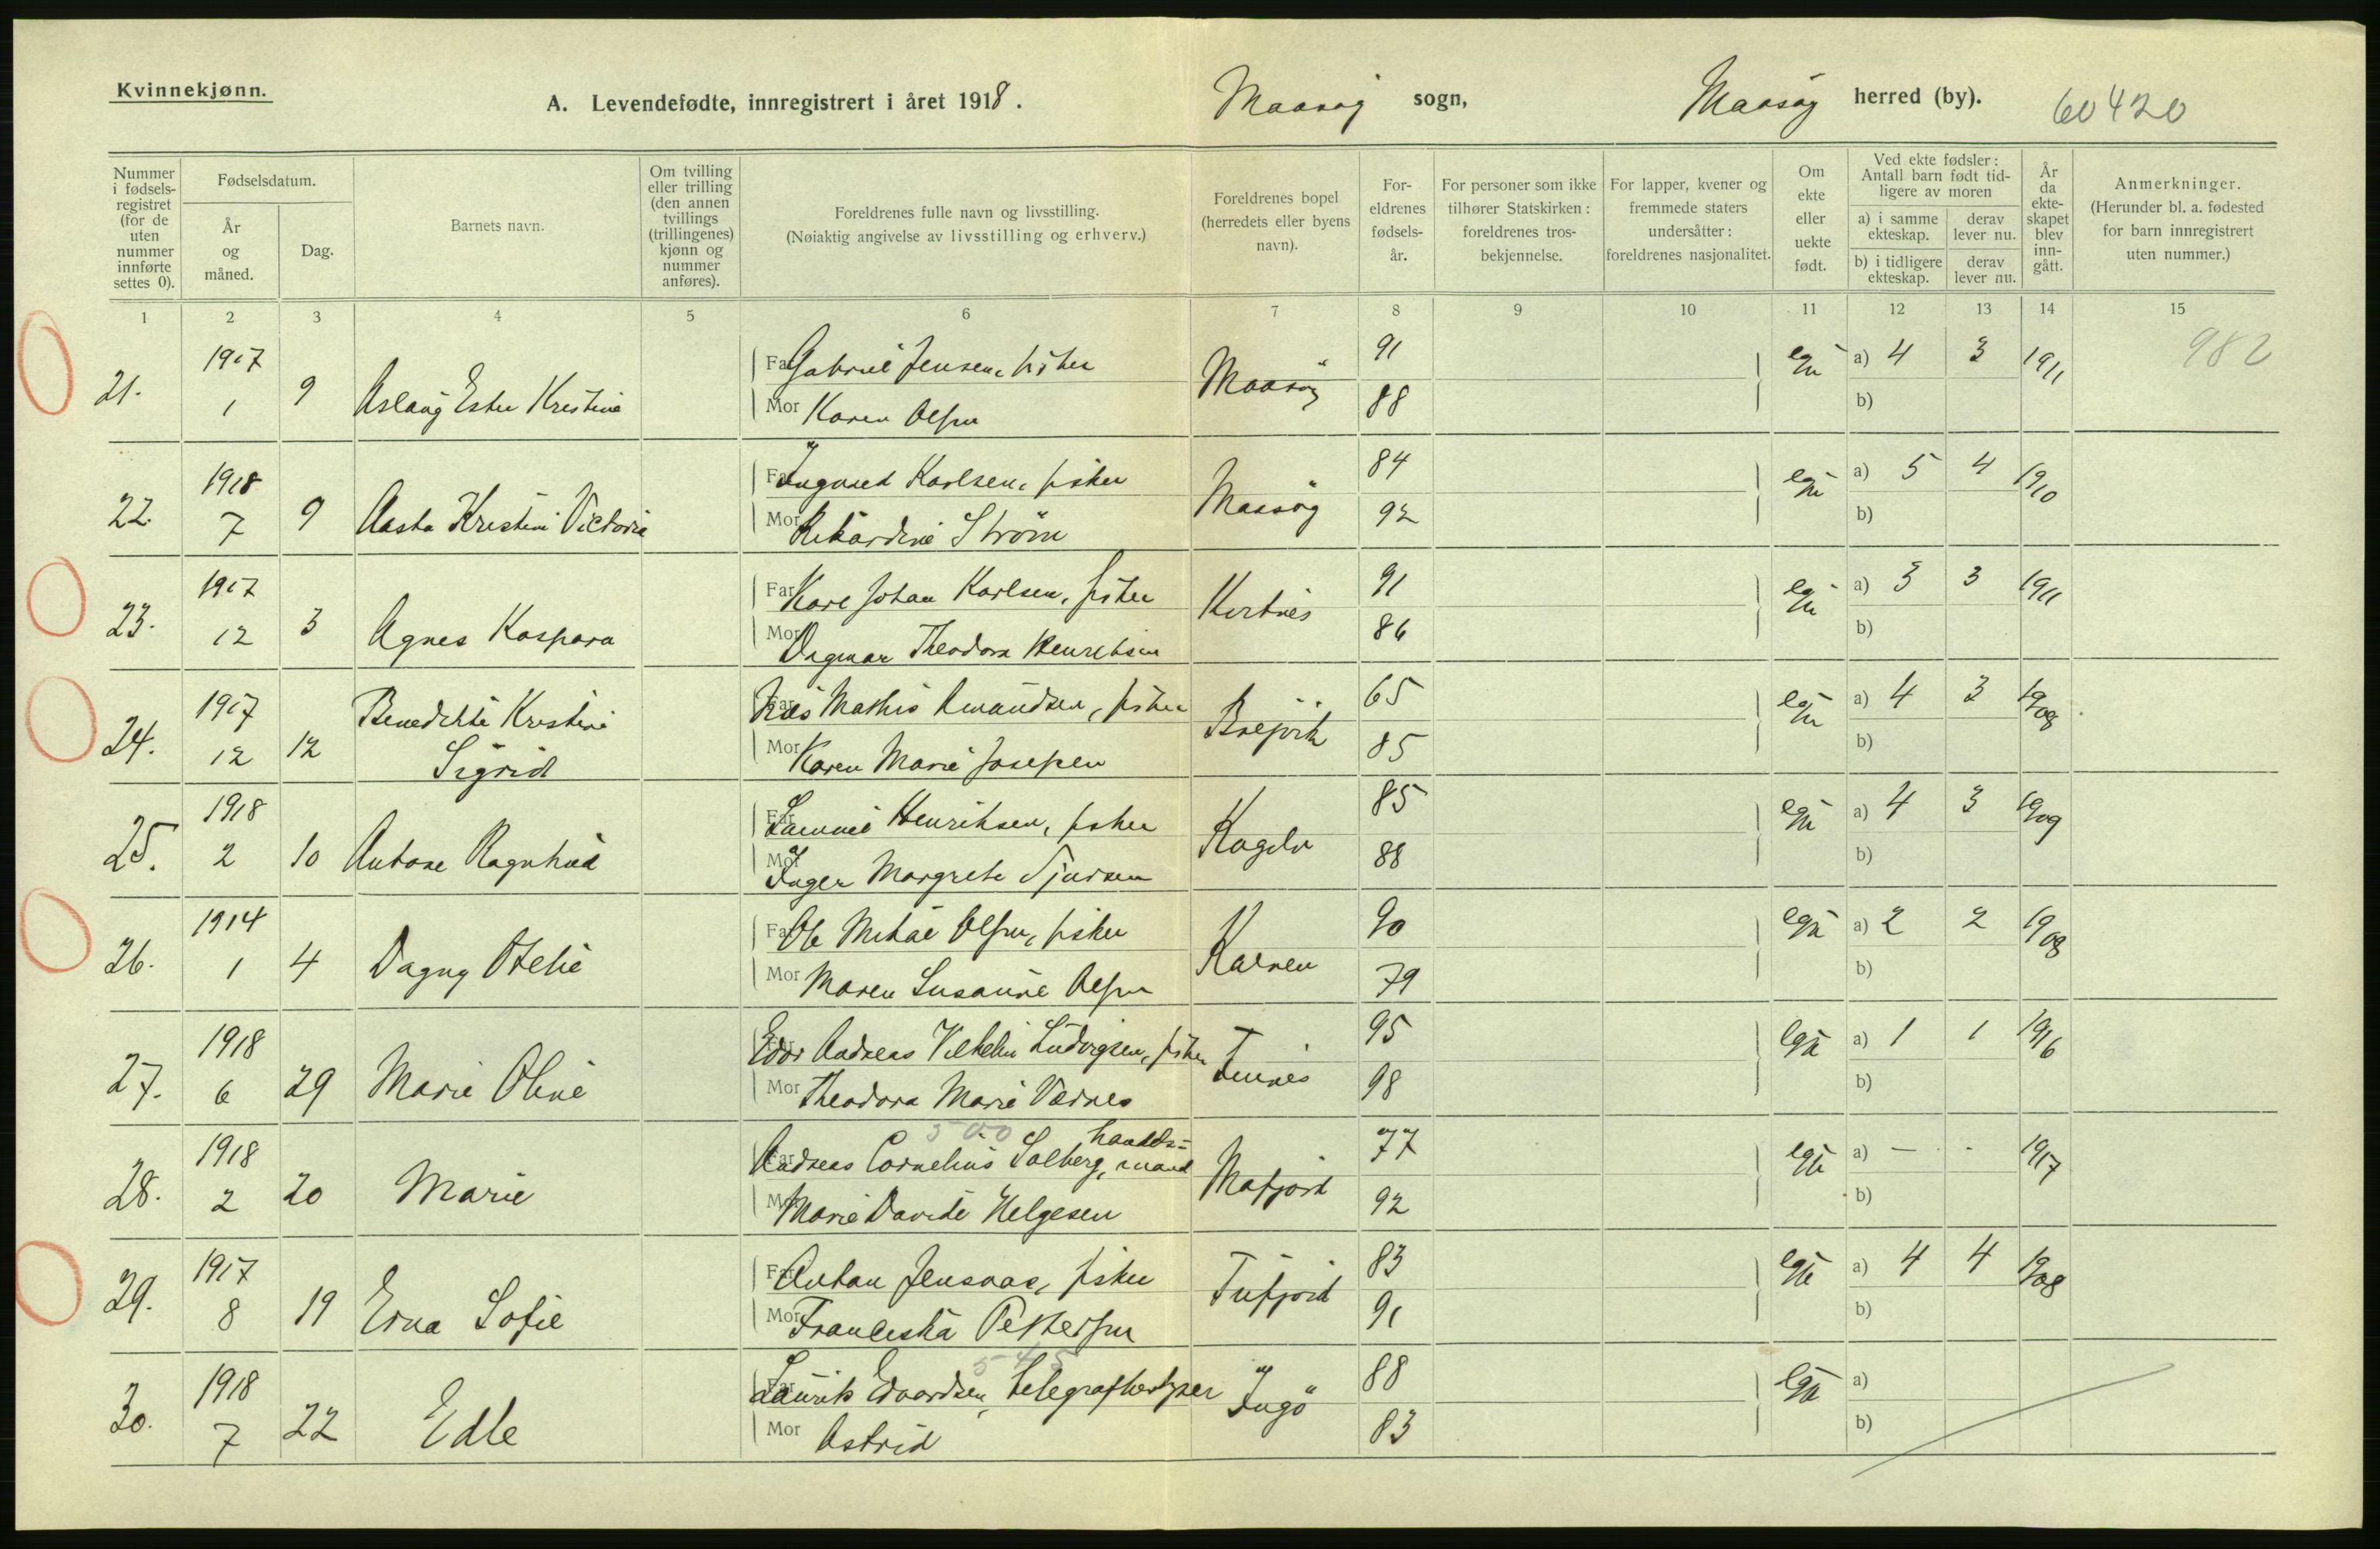 Kvinnekjønn.
A. Levendefødte, innregistrert i året 1918.
Maasøy sogn,
Maasøy herred (by).
60420
Nummer i fødsels-registret (for de uten nummer innførte settes 0).
Fødselsdatum.
År og måned.
Dag.
Barnets navn.
Om tvilling eller trilling (den annen tvillings (trillingenes) kjønn og nummer anføres).
Foreldrenes fulle navn og livsstilling.
(Nøiaktig angivelse av livsstilling og erhverv.)
Foreldrenes bopel (herredets eller byens navn).
For-eldrenes fødsels-år.
For personer som ikke tilhører Statskirken: foreldrenes tros-bekjennelse.
For lapper, kvener og fremmede staters undersåtter: foreldrenes nasjonalitet.
Om ekte eller uekte født.
Ved ekte fødsler: Antall barn født tid-ligere av moren
a) i samme ekteskap.
derav lever nu.
b) i tidligere ekteskap.
derav lever nu.
År da ekte-skapet blev inn-gått.
Anmerkninger.
(Herunder bl. a. fødested for barn innregistrert uten nummer.)
1 2 3 4 5 6 7 8 9 10 11 12 13 14 15
21. 1917 1 9 Aslaug Ester Kristine
Far Gabriel Jensen, fisker Maasøy 91 egte a) 4 3 1911 982
Mor Karen Olsen 88 b)
22. 1918 7 9 Aasta Kristine Victoria
Far Ingvald Karlsen, fisker Maasøy 84 egte a) 5 4 1910
Mor Rikardine Strøm 92 b)
23. 1917 12 3 Agnes Kaspara
Far Karl Johan Karlsen, fisker 91 egte a) 3 3 1911
Mor Dagmar Theodora Henriksen 86 b)
24. 1917 12 12 Benedikte Kristine Sigrid
Far Mathis Amundsen, fisker 65 egte a) 4 3 1908
Mor Karen Marie Josefsen 85 b)
25. 1918 2 10 Antone Ragnhild
Far Samuel Henriksen, fisker 85 egte a) 4 3 1909
Mor Inger Margrete 88 b)
26. 1914 1 4 Dagny Otelie
Far Ole Mikal Olsen, fisker 90 egte a) 2 2 1908
Mor Maren Susanne Olsen 79 b)
27. 1918 6 29 Marie Oline
Far Edor Andreas Vilhelm Ludvigsen, fisker 95 egte a) 1 1 1916
Mor Theodora Marie Værnes 98 b)
28. 1918 2 20 Marie
500
Far Andreas Cornelius Solberg, handelsmand Mafjord 77 egte a) — - 1917
Mor Marie Davide Helgesen 92 b)
29. 1917 8 19 Erna Sofie
Far Anton Jensaas, fisker Tufjord 83 egte a) 4 4 1908
Mor Franciska Pettersen 91 b)
30. 1918 7 22 Edle
545
Far Laurits Edvardsen, telegrafbestyrer Ingø 88 egte a)
Mor Astrid 83 b)